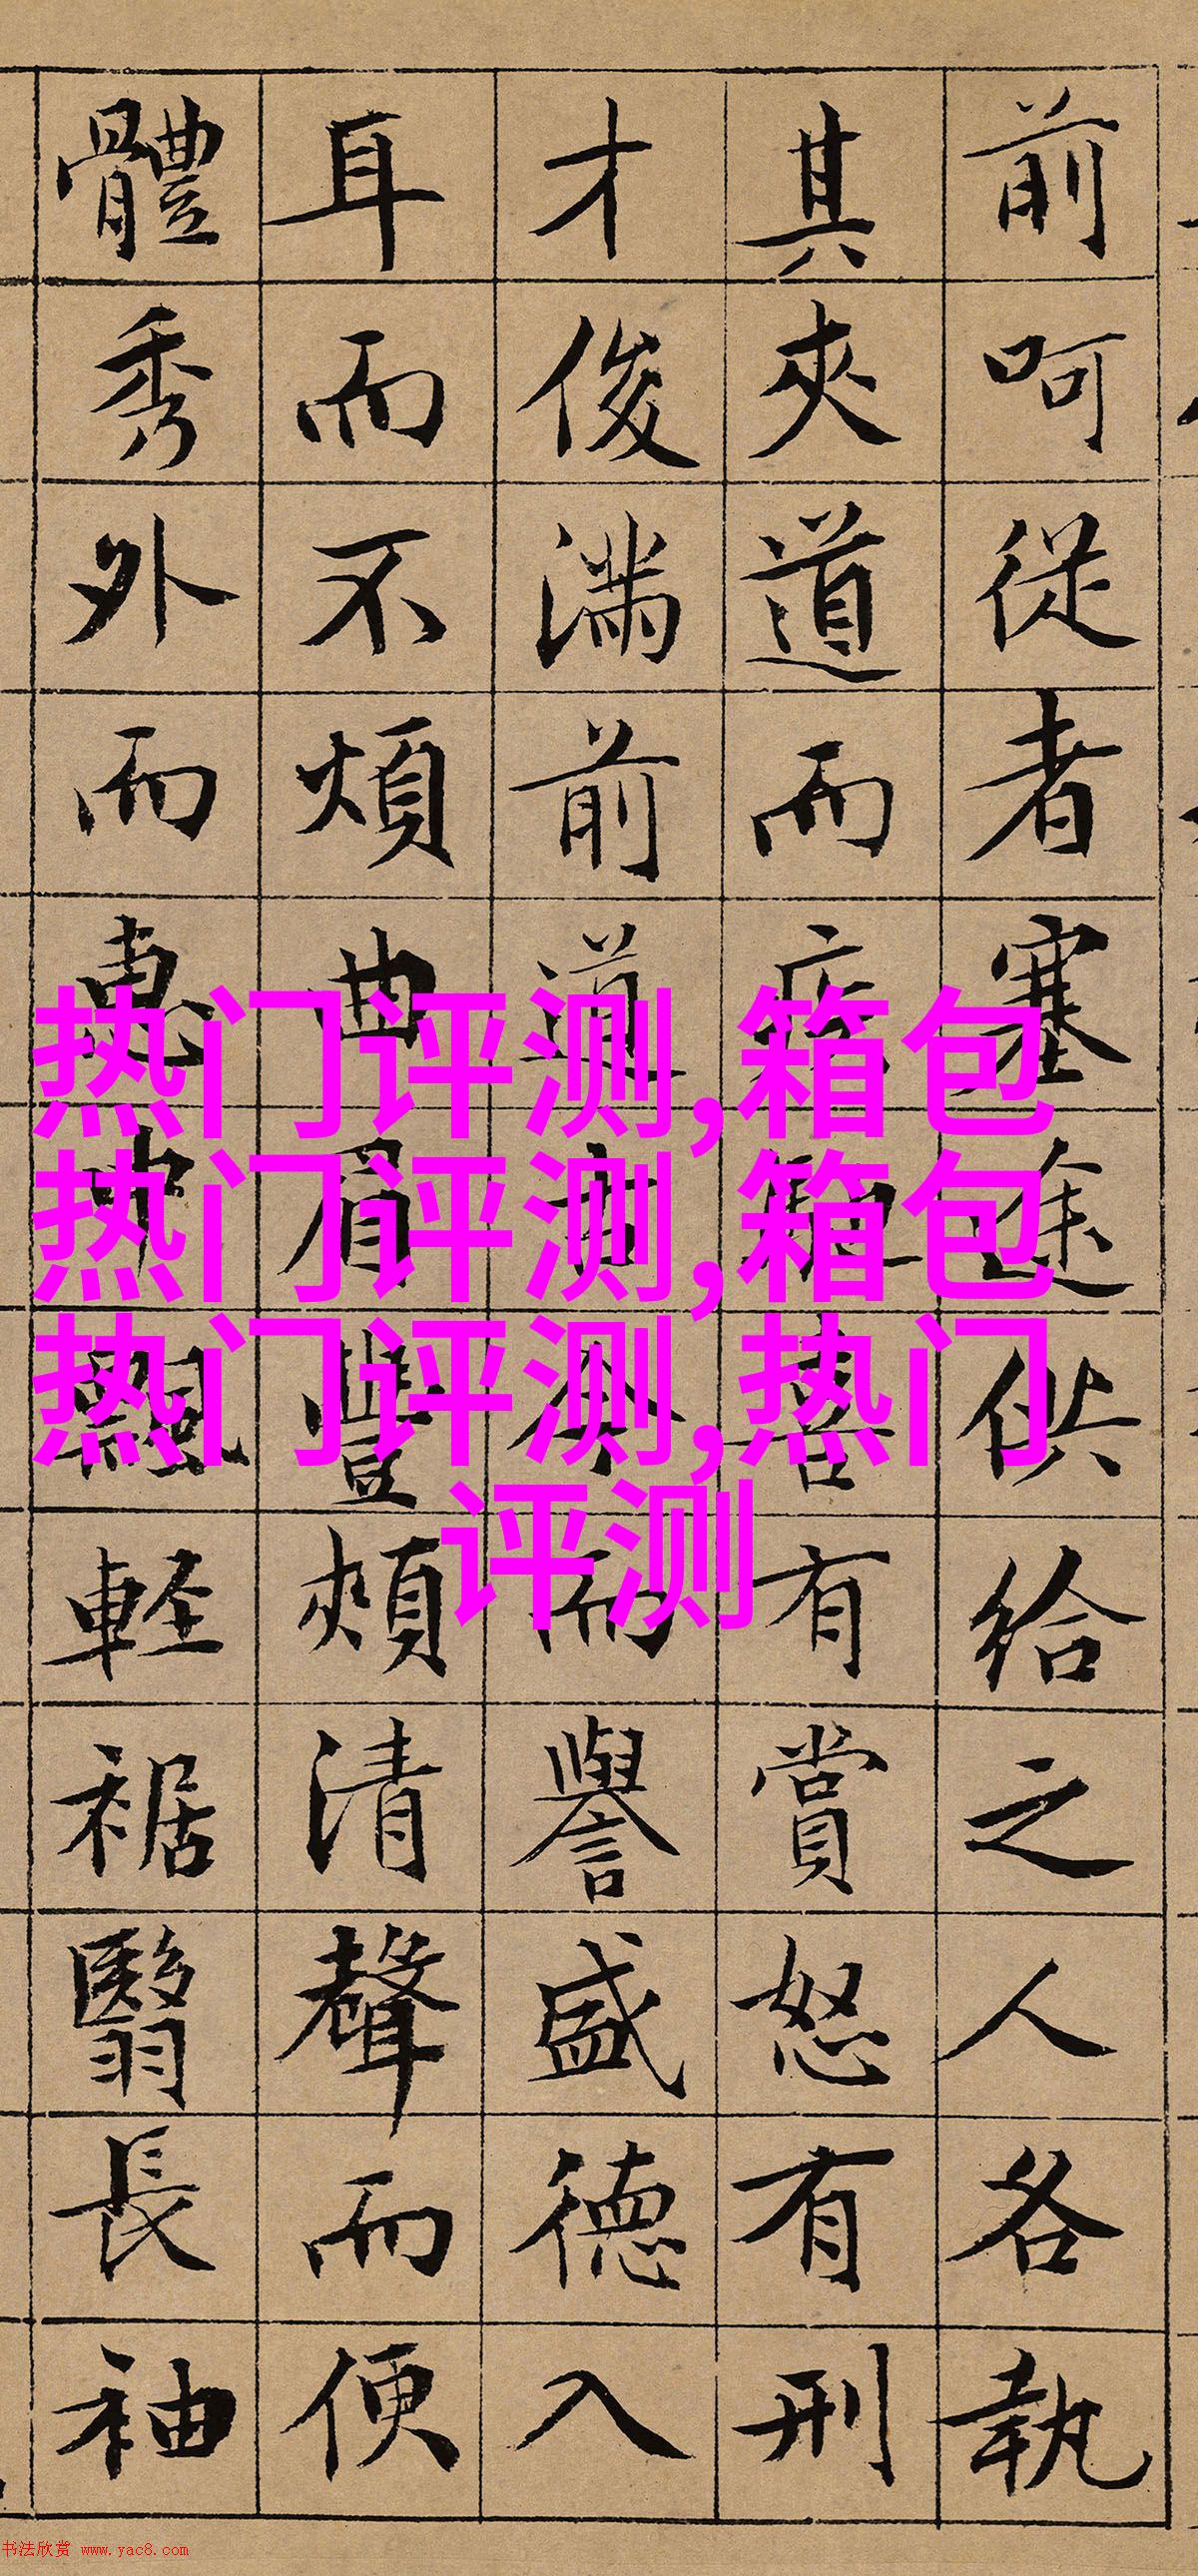 前呵從者塞途供給之人各執
其夾道而疾馳喜有賞怒有刑
才俊满前道古今而譽盛徳入
耳而不煩曲眉豐頰清聲而便
體秀外而惠中飄軽裾翳長袖
热门评测,箱包
热门评测,箱包
热门评测,热门
评测
书法欣赏 www.yac8.com